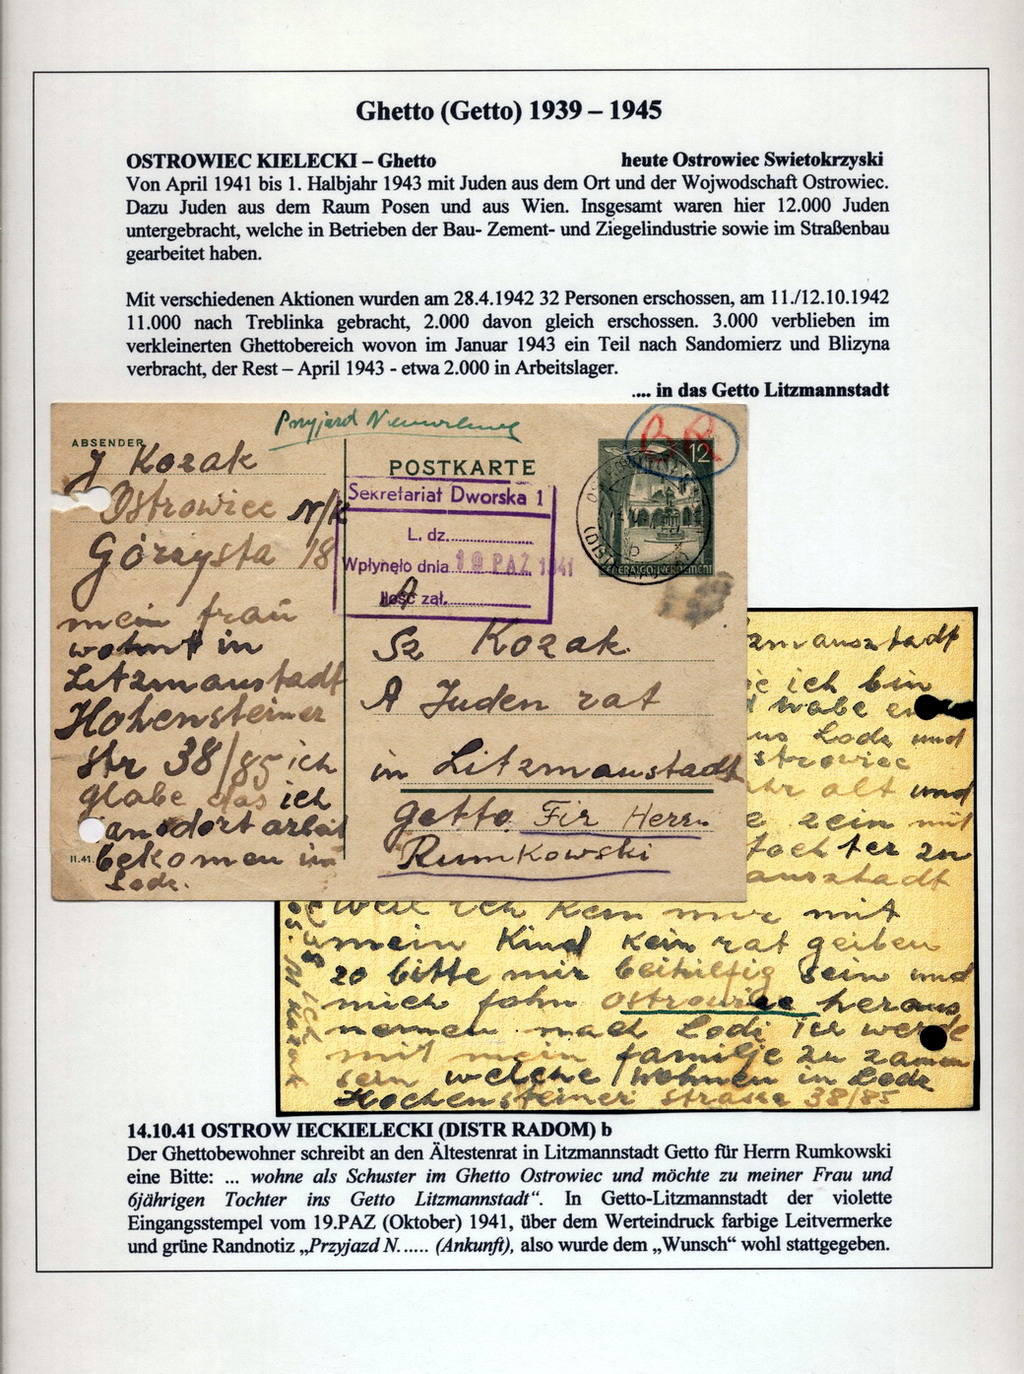 Ghetto (Getto) 1939 – 1945
OSTROWIEC KIELECKI – Ghetto heute Ostrowiec Swietokrzyski
Von April 1941 bis 1. Halbjahr 1943 mit Juden aus dem Ort und der Wojwodschaft Ostrowiec.
Dazu Juden aus dem Raum Posen und aus Wien. Insgesamt waren hier 12.000 Juden
untergebracht, welche in Betrieben der Bau- Zement- und Ziegelindustrie sowie im Straßenbau
gearbeitet haben.
Mit verschiedenen Aktionen wurden am 28.4.1942 32 Personen erschossen, am 11./12.10.1942
11.000 nach Treblinka gebracht, 2.000 davon gleich erschossen. 3.000 verblieben im
verkleinerten Ghettobereich wovon im Januar 1943 ein Teil nach Sandomierz und Blizyna
verbracht, der Rest – April 1943 - etwa 2.000 in Arbeitslager.
.... in das Getto Litzmannstadt
Przyjazd
ABSENDER
J Kozak
Ostrowiec N/K
Górzysta 18
mein frau
wohnt in
Litzmanstadt
Hohensteiner
str 38/85 ich
glabe das ich
an dort arbeit
bekomen in
Lodz.
II.41.
POSTKARTE
12
GENERALGOUVERNEMENT
Sekretariat Dworska 1
L. dz.
Wpłynęło dnia 19 PAZ 1941
Ilość zał.
A
Sz Kozak.
A Juden rat
in Litzmanstadt
getto Fir Herrn
Rumkowski
ich bin
Lodz und
strowiec
alt und
zein mit
tochter zu
weil ich kem mir mit
mein Kind kein rat geiben
zo bitte mir beihilfig sein und
mich fohn Ostrowiec heraus
nemen nach Lodz ich werde
mit mein familje zu zamen
sein welche wohnen in Lodz
Hochensteiner strasse 38/85
14.10.41 OSTROW IECKIELECKI (DISTR RADOM) b
Der Ghettobewohner schreibt an den Ältestenrat in Litzmannstadt Getto für Herrn Rumkowski
eine Bitte: ... wohne als Schuster im Ghetto Ostrowiec und möchte zu meiner Frau und
6jährigen Tochter ins Getto Litzmannstadt“. In Getto-Litzmannstadt der violette
Eingangsstempel vom 19.PAZ (Oktober) 1941, über dem Werteindruck farbige Leitvermerke
und grüne Randnotiz „Przyjazd N...... (Ankunft), also wurde dem „Wunsch“ wohl stattgegeben.